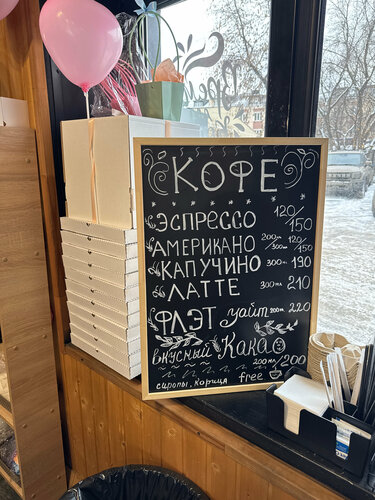 Вре
КОФЕ
ЭСПРЕССО 120/150
АМЕРИКАНО 200мл/300мл 120/150
КАПУЧИНО 300мл 190
ЛАТТЕ 300мл 210
ФЛЭТ уайт 200мл 220
вкусный Какао 200мл/200
сиропы, корица free